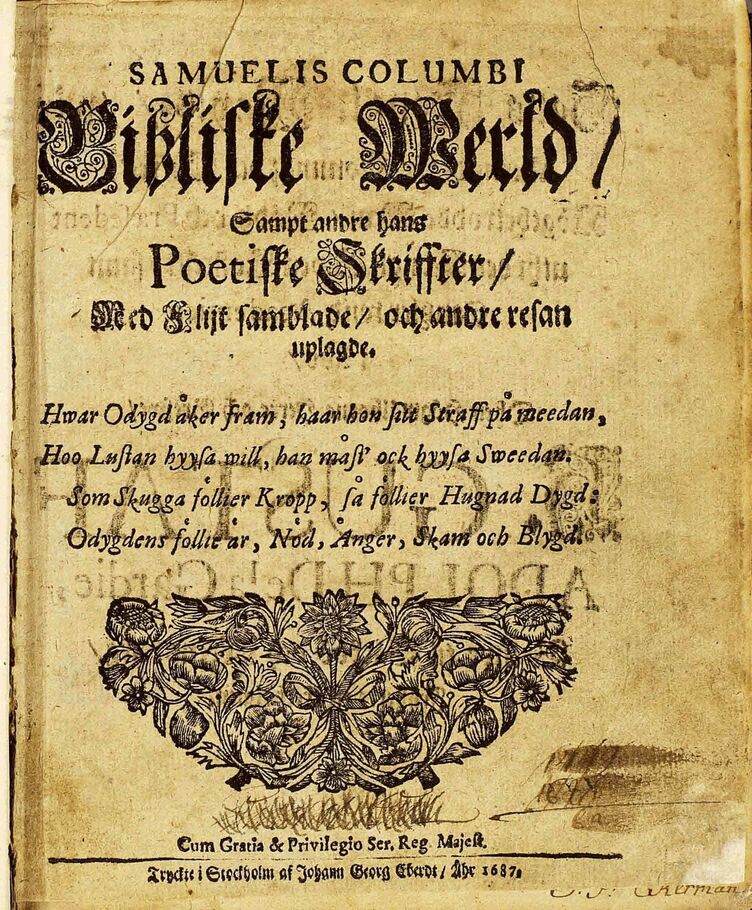 SAMUELIS COLUMBI
Bibliske Werld/
Sampt andre hans
Poetiske Skriffter/
Med Flijt samblade/ och andre resan
uplagde.
Hwar Odygd åker fram, haar hon sitt Straff på meedan,
Hoo Lustan hyysa will, han måst' ock hyysa Sweedan.
Som Skugga föllier Kropp, så föllier Hugnad Dygd:
Odygdens föllie är, Nöd, Ånger, Skam och Blygd.
Cum Gratia & Privilegio Ser. Reg. Majest.
Tryckte i Stockholm af Johann Georg Eberdt/ Åhr 1687.